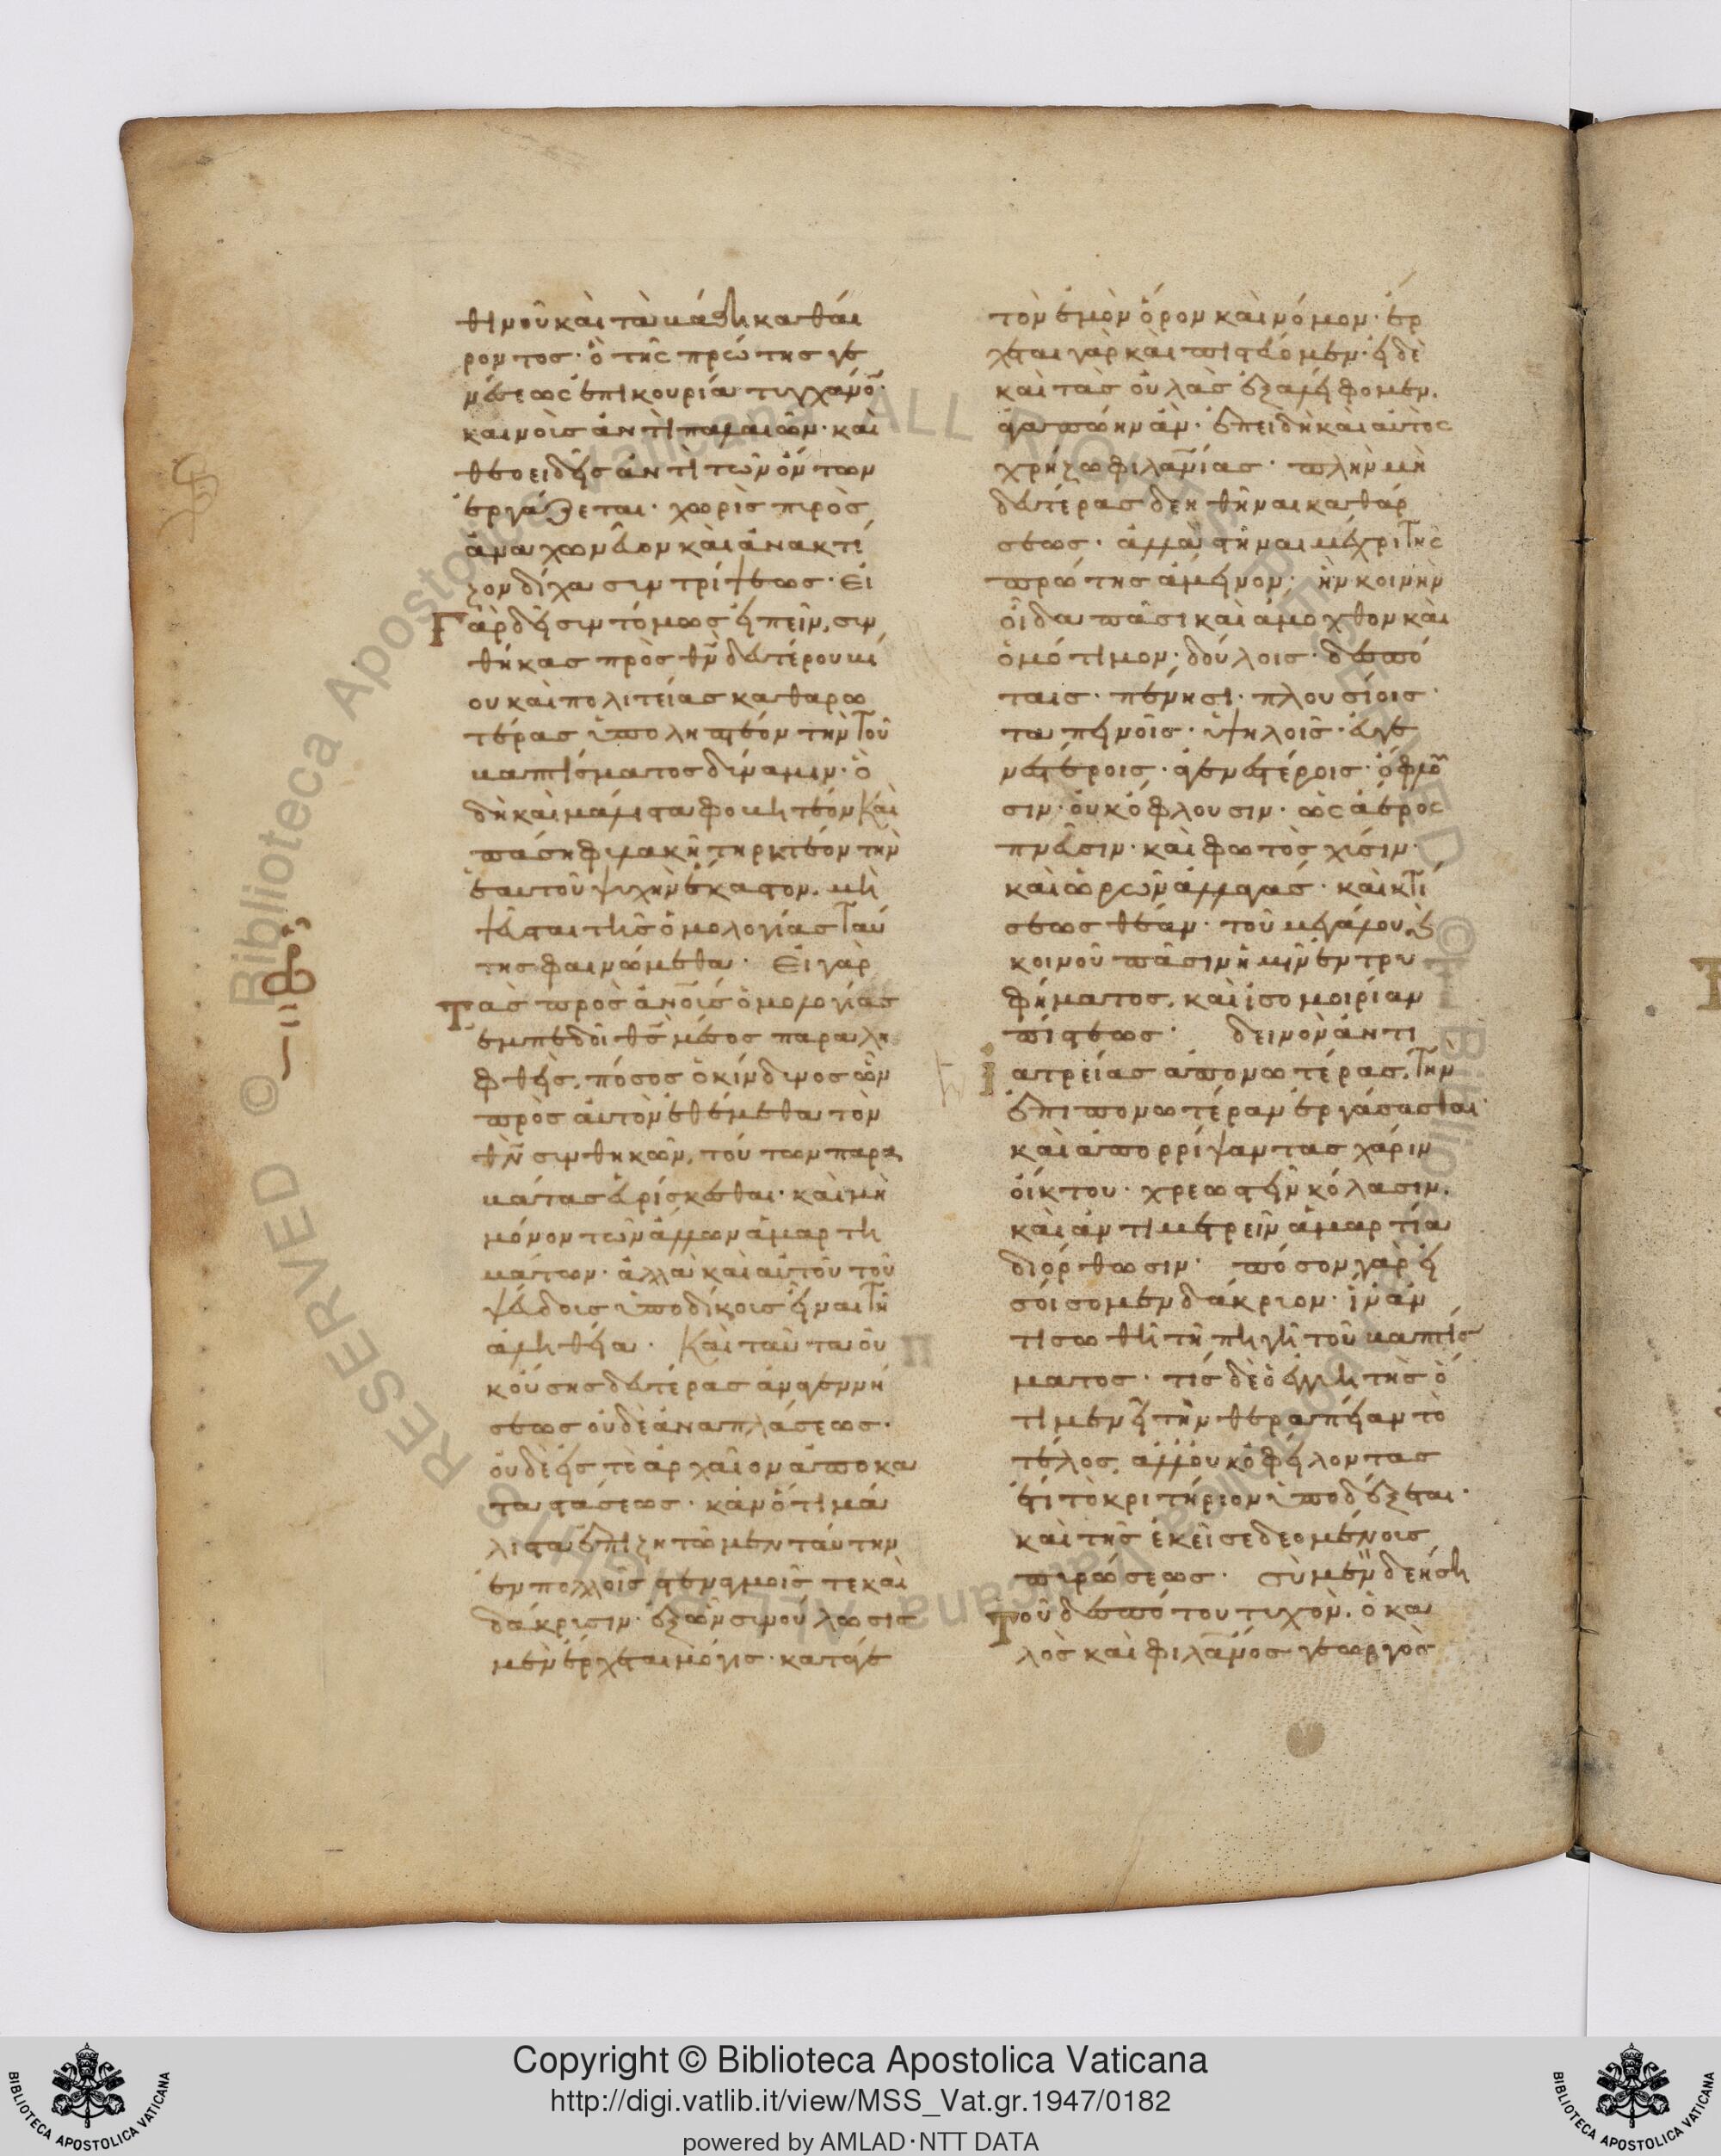 θινοῦ καὶ τὰ βάθη καθαί
ροντος· ὁ τῆς πρώτης γε
νέσεως ἐπικουρία τυγχάνον·
καινοὺς ἀντὶ παλαιῶν· καὶ
θεοειδεῖς ἀντὶ τῶν ὄντων
ἐργάζεται· χωρὶς πυρὸς
ἀναχωνεῦον καὶ ἀνακτί
ζον δίχα συντρίψεως· Εἰ
γὰρ δεῖ συντόμως εἰπεῖν, συν
θήκας πρὸς θν δευτέρου βί
ου καὶ πολιτείας καθαρω
τέρας ὑποληπτέον τὴν τοῦ
βαπτίσματος δύναμιν· ὃ
δὴ καὶ μάλιστα φοβητέον καὶ
πάσῃ φυλακῇ τηρητέον τὴν
ἑαυτοῦ ψυχὴν ἕκαστον, μὴ
ψεῦσται τῆς ὁμολογίας ταύ
της φαινώμεθα· Εἰ γὰρ
τὰς πρὸς ἀνοὺς ὁμολογίας
ἐμπεδοῖ θς μέσος παραλη
φθείς, πόσος ὁ κίνδυνος ὧν
πρὸς αὐτὸν ἐθέμεθα τὸν
θν συνθηκῶν, τούτων παρα
βάτας εὑρίσκεσθαι· καὶ μὴ
μόνον τῶν ἄλλων ἁμαρτη
μάτων· ἀλλὰ καὶ αὐτοῦ τοῦ
ψεύδους ὑποδίκους εἶναι τῇ
ἀληθεία· Καὶ ταῦτα οὐ
κ οὔσης δευτέρας ἀναγεννή
σεως οὐδὲ ἀναπλάσεως·
οὐδὲ εἰς τὸ ἀρχαῖον ἀποκα
ταστάσεως· κἂν ὅτι μά
λιστα ἐπιζητῶμεν ταύτην
ἐν πολλοῖς στεναγμοῖς τε καὶ
δάκρυσιν· ἐξ ὧν συνούλωσις
μὲν ἔρχεται μόγις· κατά γε
τὸν ἐμὸν ὅρον καὶ νόμον· ἔρ
χεται γὰρ καὶ πιστεύομεν· εἰ δὲ
καὶ τὰς οὐλὰς ἐξαλείψομεν,
ἀγαπῴην ἄν· ἐπειδὴ καὶ αὐτὸς
χρῄζω φιλανίας· πλὴν μὴ
δευτέρας δεηθῆναι καθάρ
σεως· ἀλλὰ στῆναι μέχρι τῆς
πρώτης ἄμεινον· ἣν κοινὴν
οἶδα πᾶσι καὶ ἄμοχθον καὶ
ὁμότιμον· δούλοις· δεσπό
ταις· πένησι· πλουσίοις·
ταπεινοῖς· ὑψηλοῖς· εὐγε
νεστέροις· ἀγενεστέροις· ὀφλοῦ
σιν· οὐκ ὄφλουσιν· ὡς ἀέρος
πνεῦσιν· καὶ φωτὸς χύσιν·
καὶ ὡρῶν ἀλλαγάς· καὶ κτί
σεως θέαν· τοῦ μεγάλου καὶ
κοινοῦ πᾶσιν ἡμῖν ἐντρυ
φήματος, καὶ ἰσομοιρίαν
πίστεως· δεινὸν ἀντὶ
ἰατρείας ἀπονωτέρας, τὴν
ἐπιπονωτέραν ἐργάσασθαι·
καὶ ἀπορρίψαντας χάριν
οἴκτου· χρεωστεῖν κόλασιν,
καὶ ἀντιμετρεῖν ἁμαρτία
διόρθωσιν· πόσον γὰρ εἰ
σοίσομεν δάκρυον· ἵν' ἀν
τισωθῆ τῇ πηγῆ τοῦ βαπτίσ
ματος· τίς δὲ ὁ ἐγγυητὴς ὅ
τι μενεῖ τὴν θεραπείαν τὸ
τέλος, ἀλλ' οὐκ ὀφείλοντας
ἔτι τὸ κριτήριον ὑποδέξεται·
καὶ τῆς ἐκεῖσε δεομένους
πυρώσεως· Σὺ μὲν δεήση
τοῦ δεσπότου τυχὸν, ὁ κα
λὸς καὶ φιλάνος γεωργὸς
Copyright © Biblioteca Apostolica Vaticana
http://digi.vatlib.it/view/MSS_Vat.gr.1947/0182
powered by AMLAD·NTT DATA
BIBLIOTECA APOSTOLICA VATICANA
BIBLIOTECA APOSTOLICA VATICANA